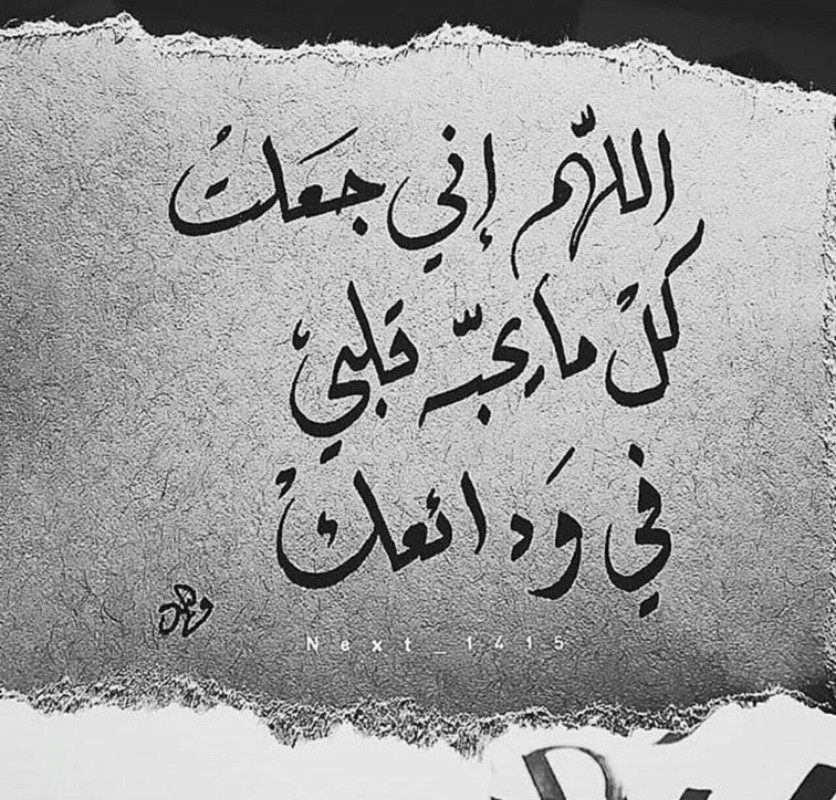 اللّهم إني جعلتُ
كلْ ما يحبّه قلبيْ
في وَدائعكْ
Next_1415